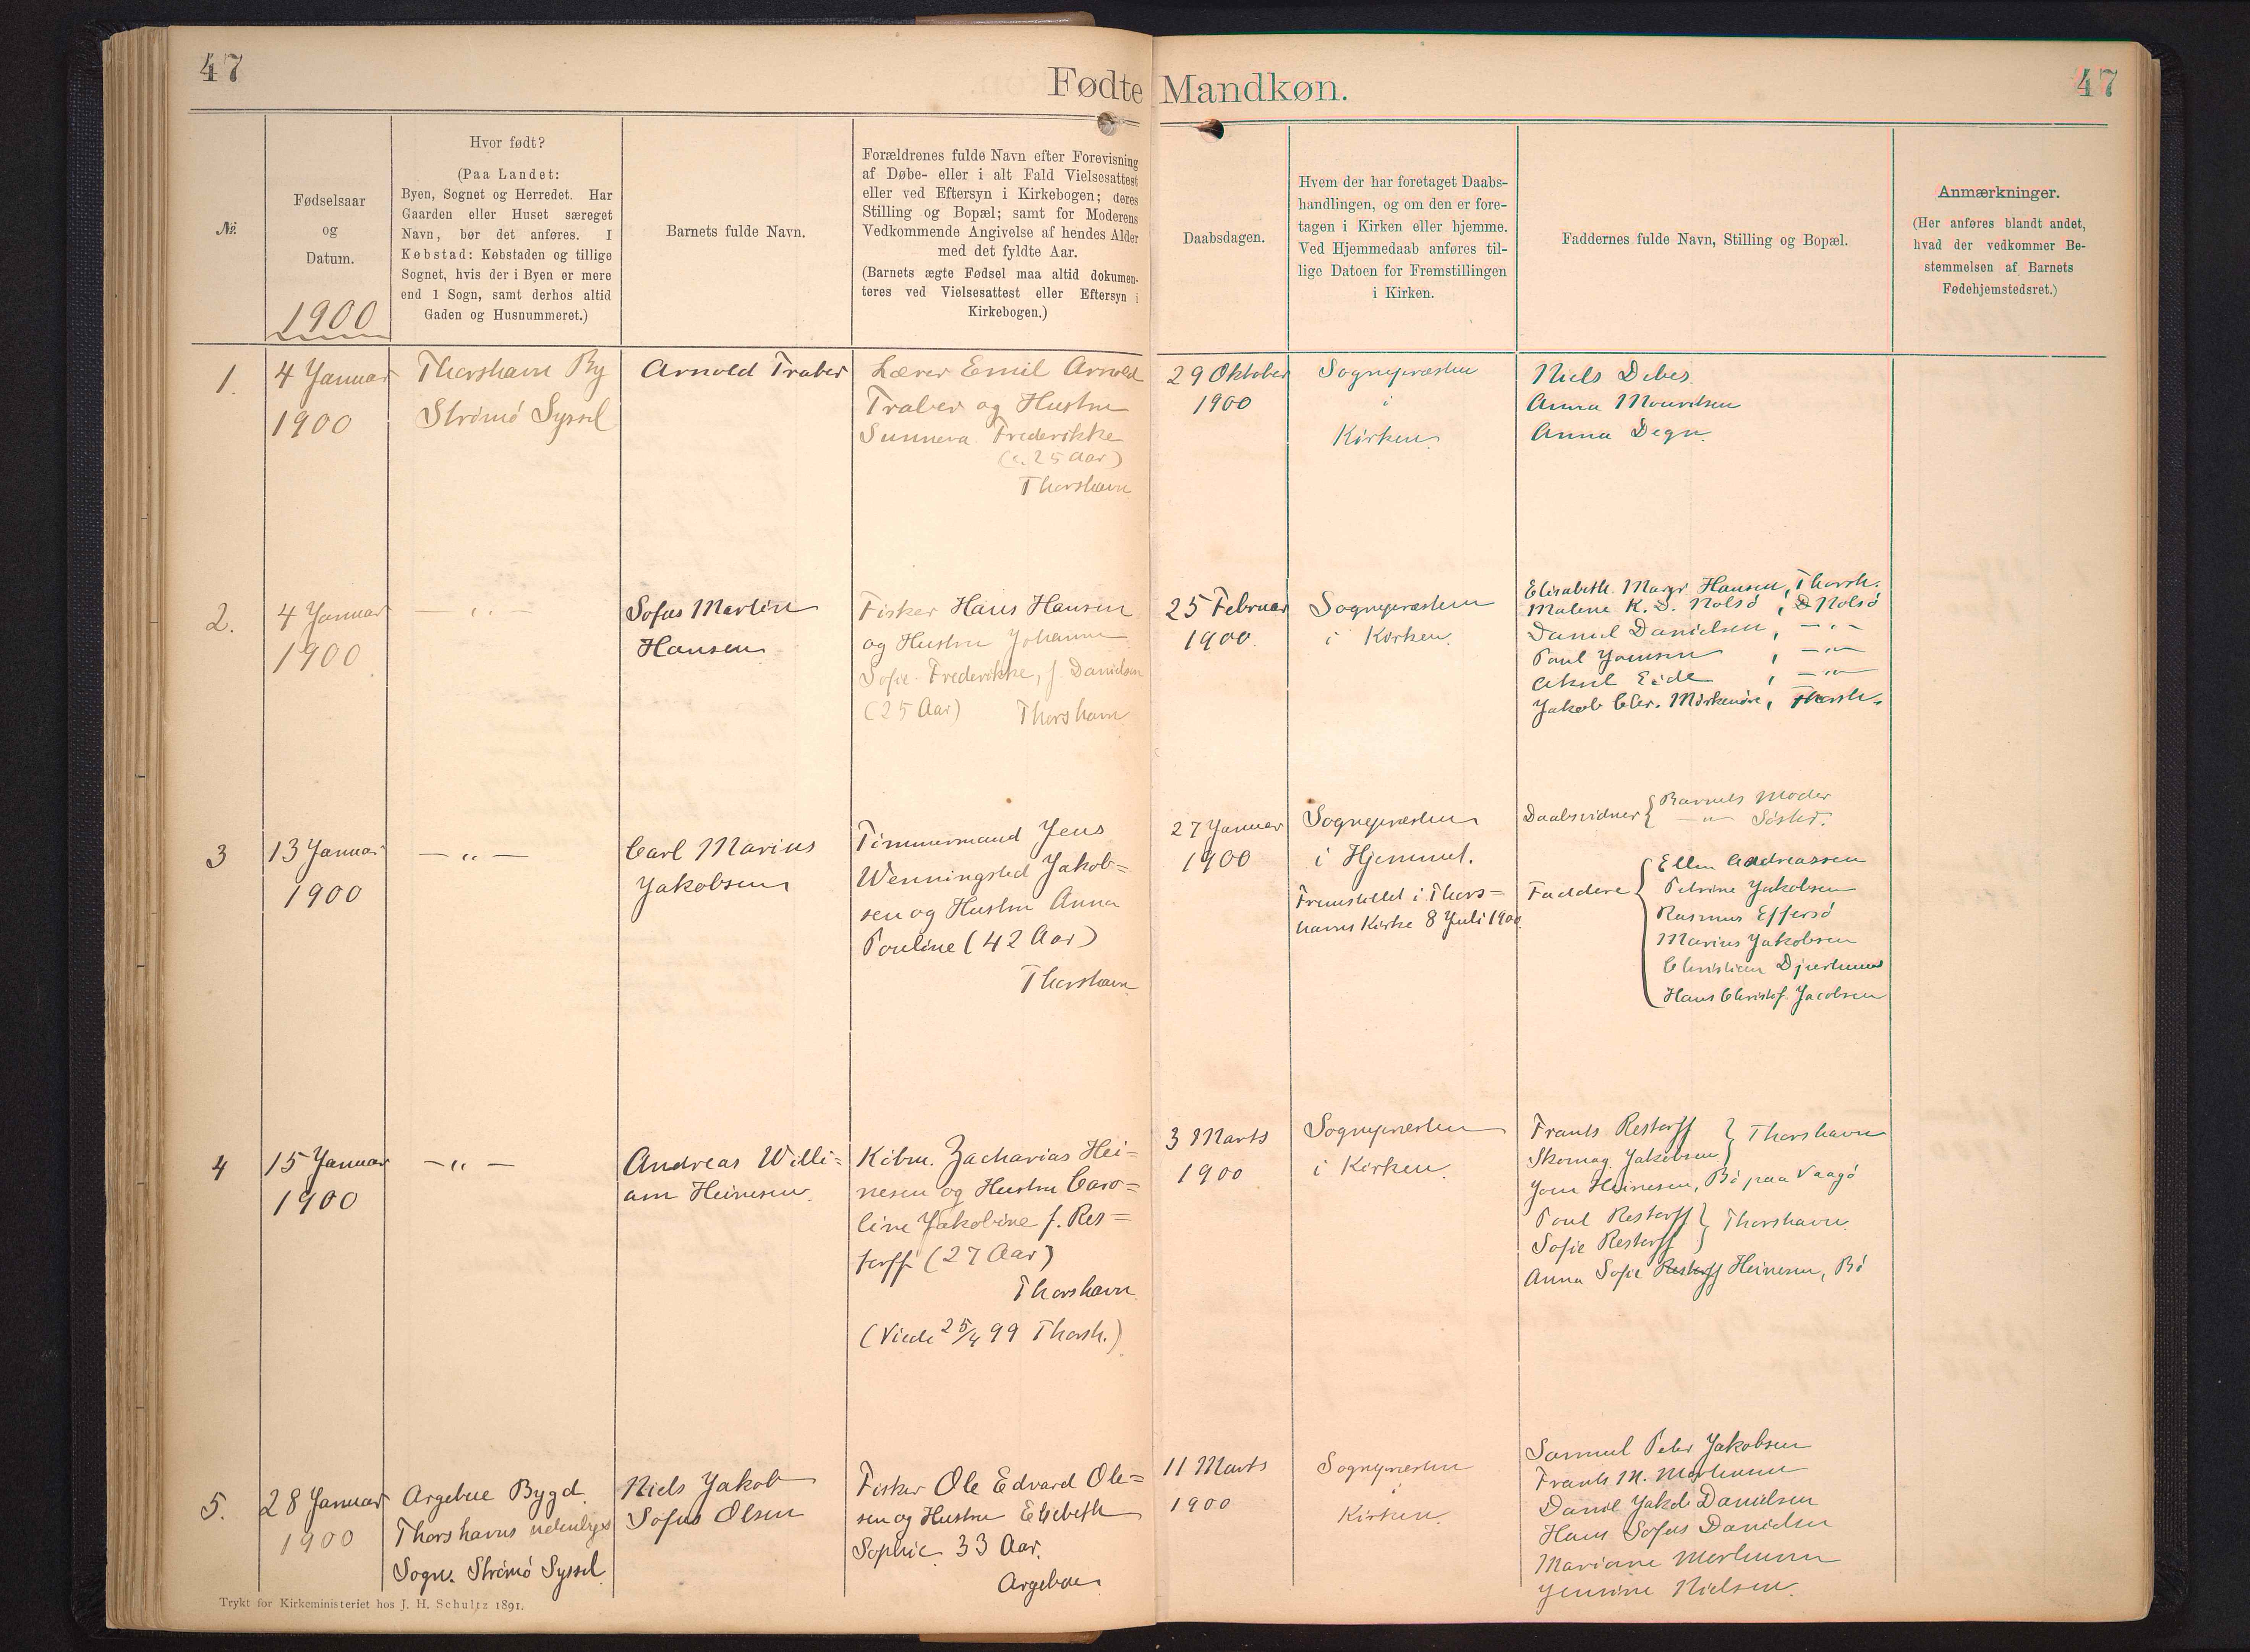 47
Fødte Mandkøn.
47
№.
Fødselsaar
og
Datum.
1900
Hvor født?
(Paa Landet:
Byen, Sognet og Herredet. Har
Gaarden eller Huset særeget
Navn, bør det anføres. I
Købstad: Købstaden og tillige
Sognet, hvis der i Byen er mere
end 1 Sogn, samt derhos altid
Gaden og Husnummeret.)
Barnets fulde Navn.
Forældrenes fulde Navn efter Forevisning
af Døbe- eller i alt Fald Vielsesattest
eller ved Eftersyn i Kirkebogen; deres
Stilling og Bopæl; samt for Moderens
Vedkommende Angivelse af hendes Alder
med det fyldte Aar.
(Barnets ægte Fødsel maa altid dokumen-
teres ved Vielsesattest eller Eftersyn i
Kirkebogen.)
Daabsdagen.
Hvem der har foretaget Daabs-
handlingen, og om den er fore-
tagen i Kirken eller hjemme.
Ved Hjemmedaab anføres til-
lige Datoen for Fremstillingen
i Kirken.
Faddernes fulde Navn, Stilling og Bopæl.
Anmærkninger.
(Her anføres blandt andet,
hvad der vedkommer Be-
stemmelsen af Barnets
Fødehjemstedsret.)
1.
4 Januar
1900
Thorshavn By
Strømø Syssel
Arnold Traber
Lærer Emil Arnold
Traber og Hustru
Sunneva Frederikke
(c. 25 Aar)
Thorshavn
29 Oktober
1900
Sognepræsten
i
Kirken.
Niels Debes.
Anna Mouritsen
Anna Degn.
2.
4 Januar
1900
— „ —
Sofus Martin
Hansen
Fisker Hans Hansen
og Hustru Johanne
Sofie Frederikke, f. Danielsen
(25 Aar) Thorshavn
25 Februar
1900
Sognepræsten
i Kirken.
Elisabeth Margr. Hansen, Thorsh.
Malene K. S. Nolsø, Nolsø
Daniel Danielsen, — „ —
Poul Joensen, — „ —
Eide, — „ —
Jakob Chr. Mørkøre, Thorsh.
3
13 Januar
1900
— „ —
Carl Marius
Jakobsen
Timmermand Jens
Wenningsted Jakob=
sen og Hustru Anna
Pouline (42 Aar)
Thorshavn
27 Januar
1900
Sognepræsten
i Hjemmet.
Fremstillet i Thors=
havns Kirke 8 Juli 1900.
Daabsvidner { Barnets Moder
— „ — Søster.
Faddere { Ellen Andreassen
Petrine Jakobsen
Rasmus Effersø
Marius Jakobsen
Christian Djurhuus
Hans Christof. Jacobsen
4
15 Januar
1900
— „ —
Andreas Willi=
am Heinesen.
Købm. Zacharias Hei=
nesen og Hustru Caro=
line Jakobine f. Res=
torff (27 Aar)
Thorshavn.
(Viede 25/4 99 Thorsh.)
3 Marts
1900
Sognepræsten
i Kirken.
Frants Restorff } Thorshavn
Skomag. Jakobsen
Joen Heinesen, Bø paa Vaagø
Poul Restorff } Thorshavn.
Sofie Restorff
Anna Sofie Restorff Heinesen, Bø
5.
28 Januar
1900
Argeboe Bygd.
Thorshavns udenbyes
Sogn. Strømø Syssel
Niels Jakob
Sofus Olsen
Fisker Ole Edvard Ole=
sen og Hustru Elsebeth
Sophie 33 Aar.
Argeboe
11 Marts
1900
Sognepræsten
i
Kirken.
Samuel Peter Jakobsen
Frants M. Mortensen
Daniel Jakob Danielsen
Hans Sofus Danielsen
Mariane Mortensen
Jensine Nielsen.
Trykt for Kirkeministeriet hos J. H. Schultz 1891.